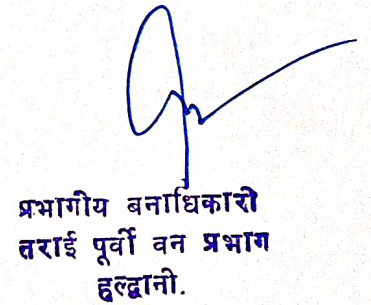 प्रभागीय बनाधिकारी
तराई पूर्वी वन प्रभाग
हल्द्वानी.